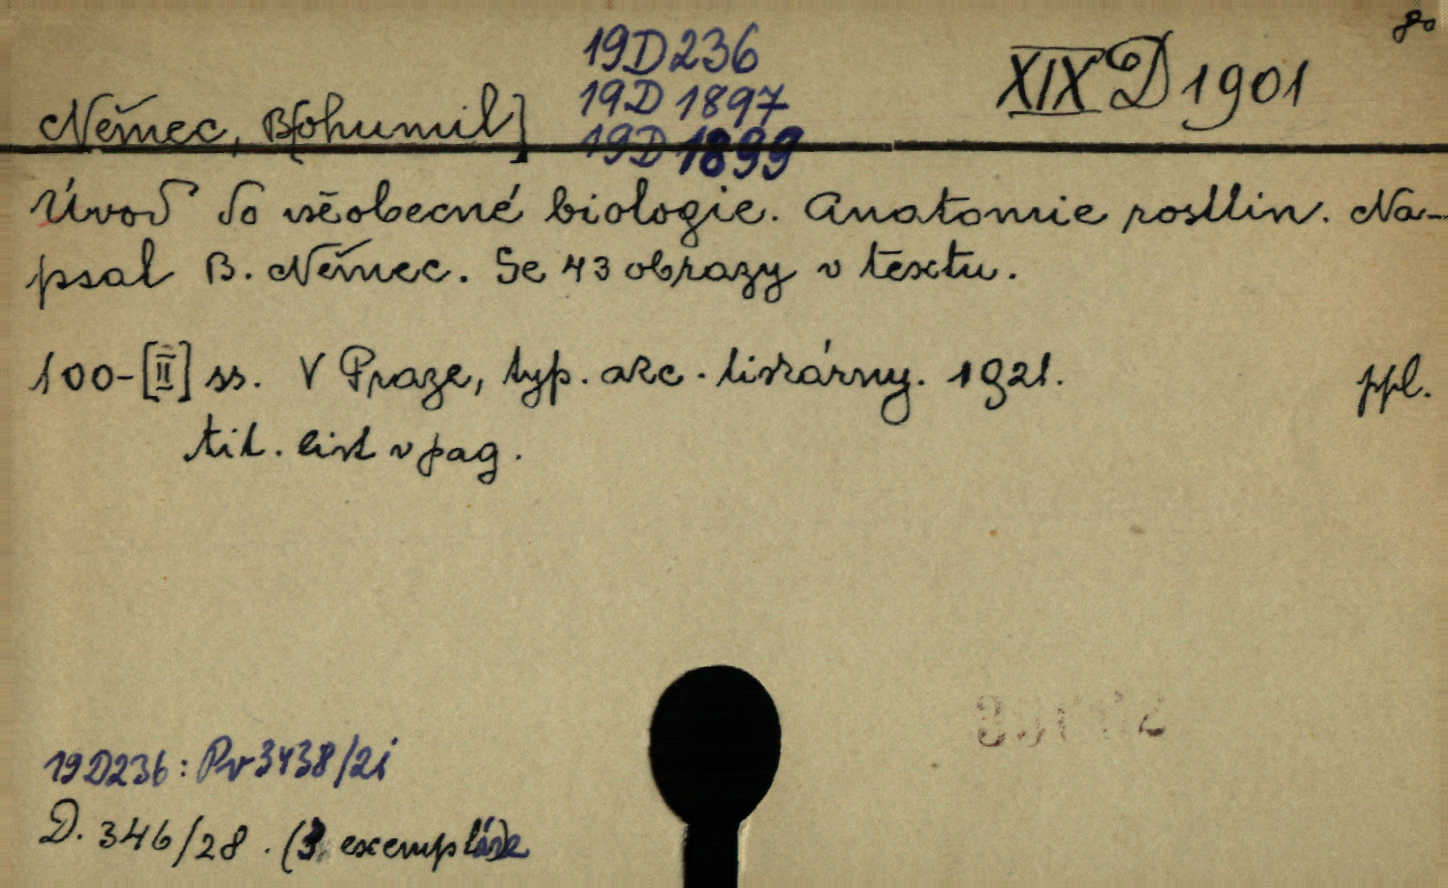 8°
19D236
XIX D 1901
19D 1897
Němec, B[ohumil]
19D 1899
Úvod do všeobecné biologie. Anatomie rostlin. Na-
psal B. Němec. Se 43 obrazy v textu.
100-[II] ss. V Praze, typ. akc. tiskárny. 1921. ppl.
tit. list v pag.
19D236: Pv3438/21
D. 346/28. (3 exempláře)